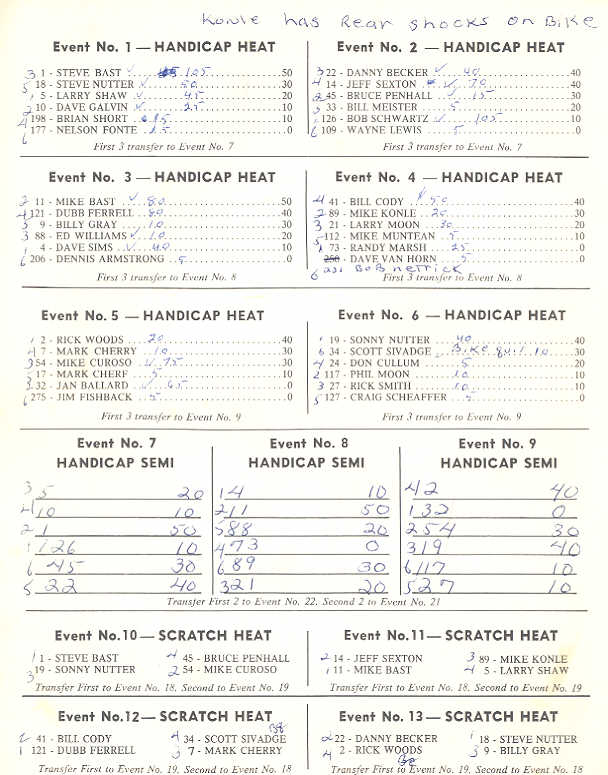 Konle has Rear shocks on Bike
Event No. 1 — HANDICAP HEAT
3 1 - STEVE BAST ✓ 105 50
5 18 - STEVE NUTTER ✓ 50 30
1 5 - LARRY SHAW ✓ 45 20
2 10 - DAVE GALVIN ✓ 25 10
4 198 - BRIAN SHORT 15 0
6 177 - NELSON FONTE 15 0
First 3 transfer to Event No. 7
Event No. 2 — HANDICAP HEAT
3 22 - DANNY BECKER ✓ 40 40
4 14 - JEFF SEXTON ✓ 70 40
2 45 - BRUCE PENHALL ✓ 15 30
5 33 - BILL MEISTER 5 20
1 126 - BOB SCHWARTZ ✓ 105 10
6 109 - WAYNE LEWIS 5 0
First 3 transfer to Event No. 7
Event No. 3 — HANDICAP HEAT
2 11 - MIKE BAST ✓ 80 50
4 121 - DUBB FERRELL 80 40
5 9 - BILLY GRAY 10 30
3 88 - ED WILLIAMS ✓ 10 20
1 4 - DAVE SIMS ✓ 40 10
6 206 - DENNIS ARMSTRONG 5 0
First 3 transfer to Event No. 8
Event No. 4 — HANDICAP HEAT
4 41 - BILL CODY 50 40
2 89 - MIKE KONLE 20 30
3 21 - LARRY MOON 30 20
5 112 - MIKE MUNTEAN 5 10
1 73 - RANDY MARSH 25 0
250 - DAVE VAN HORN 5 0
6 BOB
First 3 transfer to Event No. 8
Event No. 5 — HANDICAP HEAT
1 2 - RICK WOODS 20 40
4 7 - MARK CHERRY 10 30
3 54 - MIKE CUROSO ✓ 75 20
5 17 - MARK CHERF 5 10
2 32 - JAN BALLARD ✓ 65 0
6 275 - JIM FISHBACK 5 0
First 3 transfer to Event No. 9
Event No. 6 — HANDICAP HEAT
1 19 - SONNY NUTTER 40 40
6 34 - SCOTT SIVADGE Bike quit 10 30
4 24 - DON CULLUM 5 20
2 117 - PHIL MOON 10 10
3 27 - RICK SMITH 10 0
5 127 - CRAIG SCHEAFFER 5 0
First 3 transfer to Event No. 9
Event No. 7
HANDICAP SEMI
3 5 20
4 10 10
2 1 50
1 126 10
6 45 30
5 22 40
Event No. 8
HANDICAP SEMI
1 4 10
2 11 50
5 88 20
4 73 0
6 89 30
3 21 20
Event No. 9
HANDICAP SEMI
4 2 40
1 32 0
2 54 30
3 19 40
6 117 10
5 27 10
Transfer First 2 to Event No. 22, Second 2 to Event No. 21
Event No.10 — SCRATCH HEAT
1 1 - STEVE BAST 4 45 - BRUCE PENHALL
3 19 - SONNY NUTTER 2 54 - MIKE CUROSO
Transfer First to Event No. 18, Second to Event No. 19
Event No.11 — SCRATCH HEAT
2 14 - JEFF SEXTON 3 89 - MIKE KONLE
1 11 - MIKE BAST 4 5 - LARRY SHAW
Transfer First to Event No. 18, Second to Event No. 19
Event No.12 — SCRATCH HEAT
2 41 - BILL CODY 4 34 - SCOTT SIVADGE
1 121 - DUBB FERRELL 3 7 - MARK CHERRY
Transfer First to Event No. 19, Second to Event No. 18
Event No. 13 — SCRATCH HEAT
2 22 - DANNY BECKER 1 18 - STEVE NUTTER
4 2 - RICK WOODS 3 9 - BILLY GRAY
Transfer First to Event No. 19, Second to Event No. 18